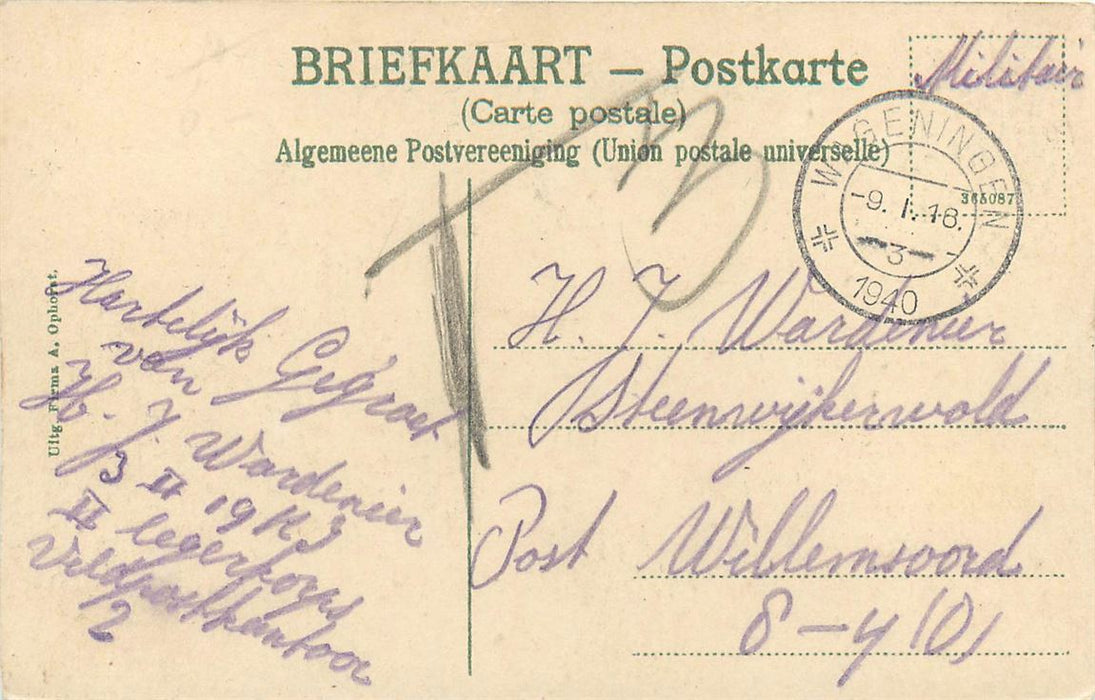 BRIEFKAART — Postkarte
(Carte postale)
Algemeene Postvereeniging (Union postale universelle)
Militair
365087
WAGENINGEN
-9. I. 18.
- 3 -
1940
T 3
Uitg. Firma A. Ophorst.
Hartelijk Gegroet
van
H. J Wardenier
3 II 19 R J
II legerkorps
Veldpostkantoor
2
H. J. Wardenier
Steenwijkerwold
Post Willemsoord
8 - 4 (O)